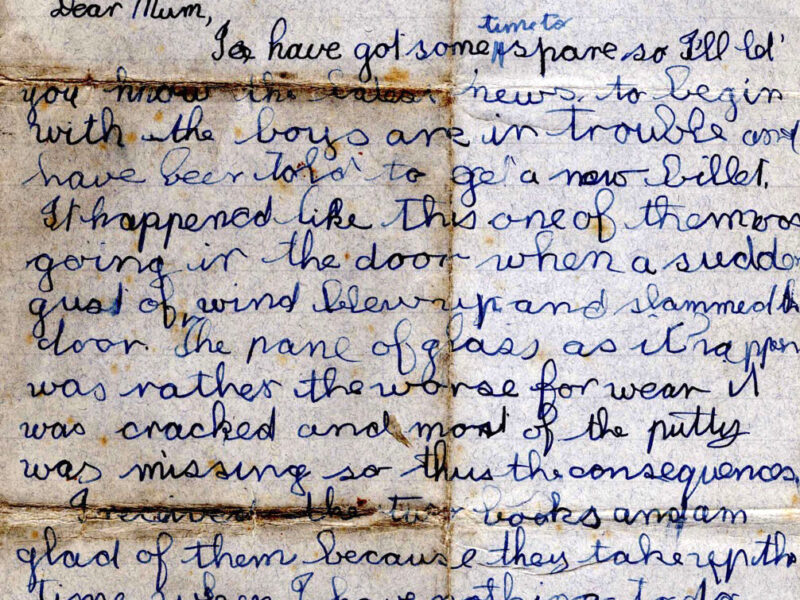 Dear Mum,
time to
I have got some spare so I'll let
you know the latest news, to begin
with the boys are in trouble and
have been told to get a new billet.
It happened like this one of them was
going in the door when a sudden
gust of wind blew up and slammed the
door. The pane of glass as it happen
was rather the worse for wear it
was cracked and most of the putty
was missing so thus the consequences.
I received the two books and am
glad of them because they take up the
time when I have nothing to do